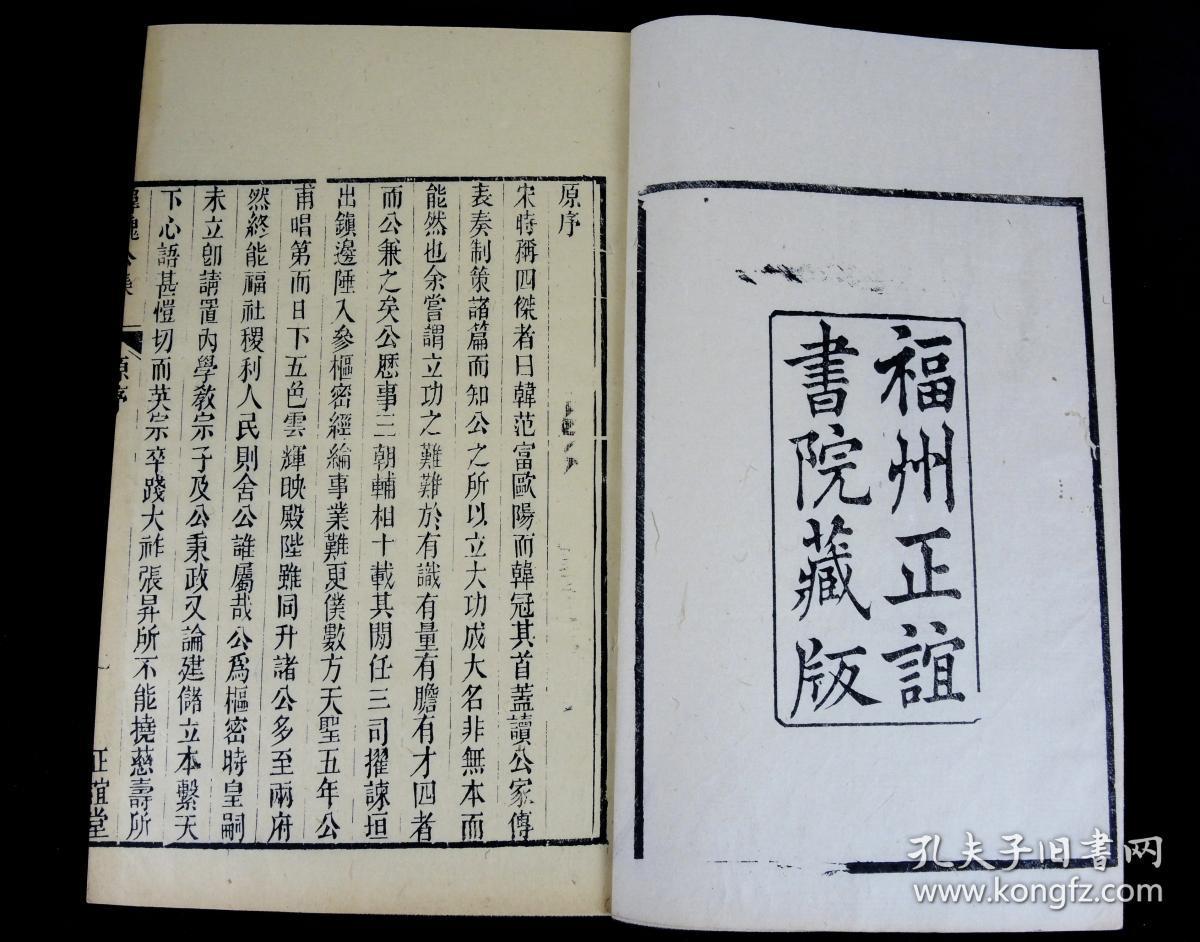 福州正誼
書院藏版
原序
宋時稱四傑者曰韓范富歐陽而韓冠其首蓋讀公家傳
表奏制策諸篇而知公之所以立大功成大名非無本而
能然也余嘗謂立功之難難於有識有量有膽有才四者
而公兼之矣公歷事三朝輔相十載其閒任三司擢諫垣
出鎮邊陲入參樞密經綸事業難更僕數方天聖五年公
甫唱第而日下五色雲輝映殿陛雖同升諸公多至兩府
然終能福社稷利人民則舍公誰屬哉公爲樞密時皇嗣
未立卽請置內學敎宗子及公秉政又論建儲立本繫天
下心語甚愷切而英宗卒踐大祚張昇所不能撓慈壽所
魏公集
原序
一
正誼堂
孔夫子旧書网
www.kongfz.com